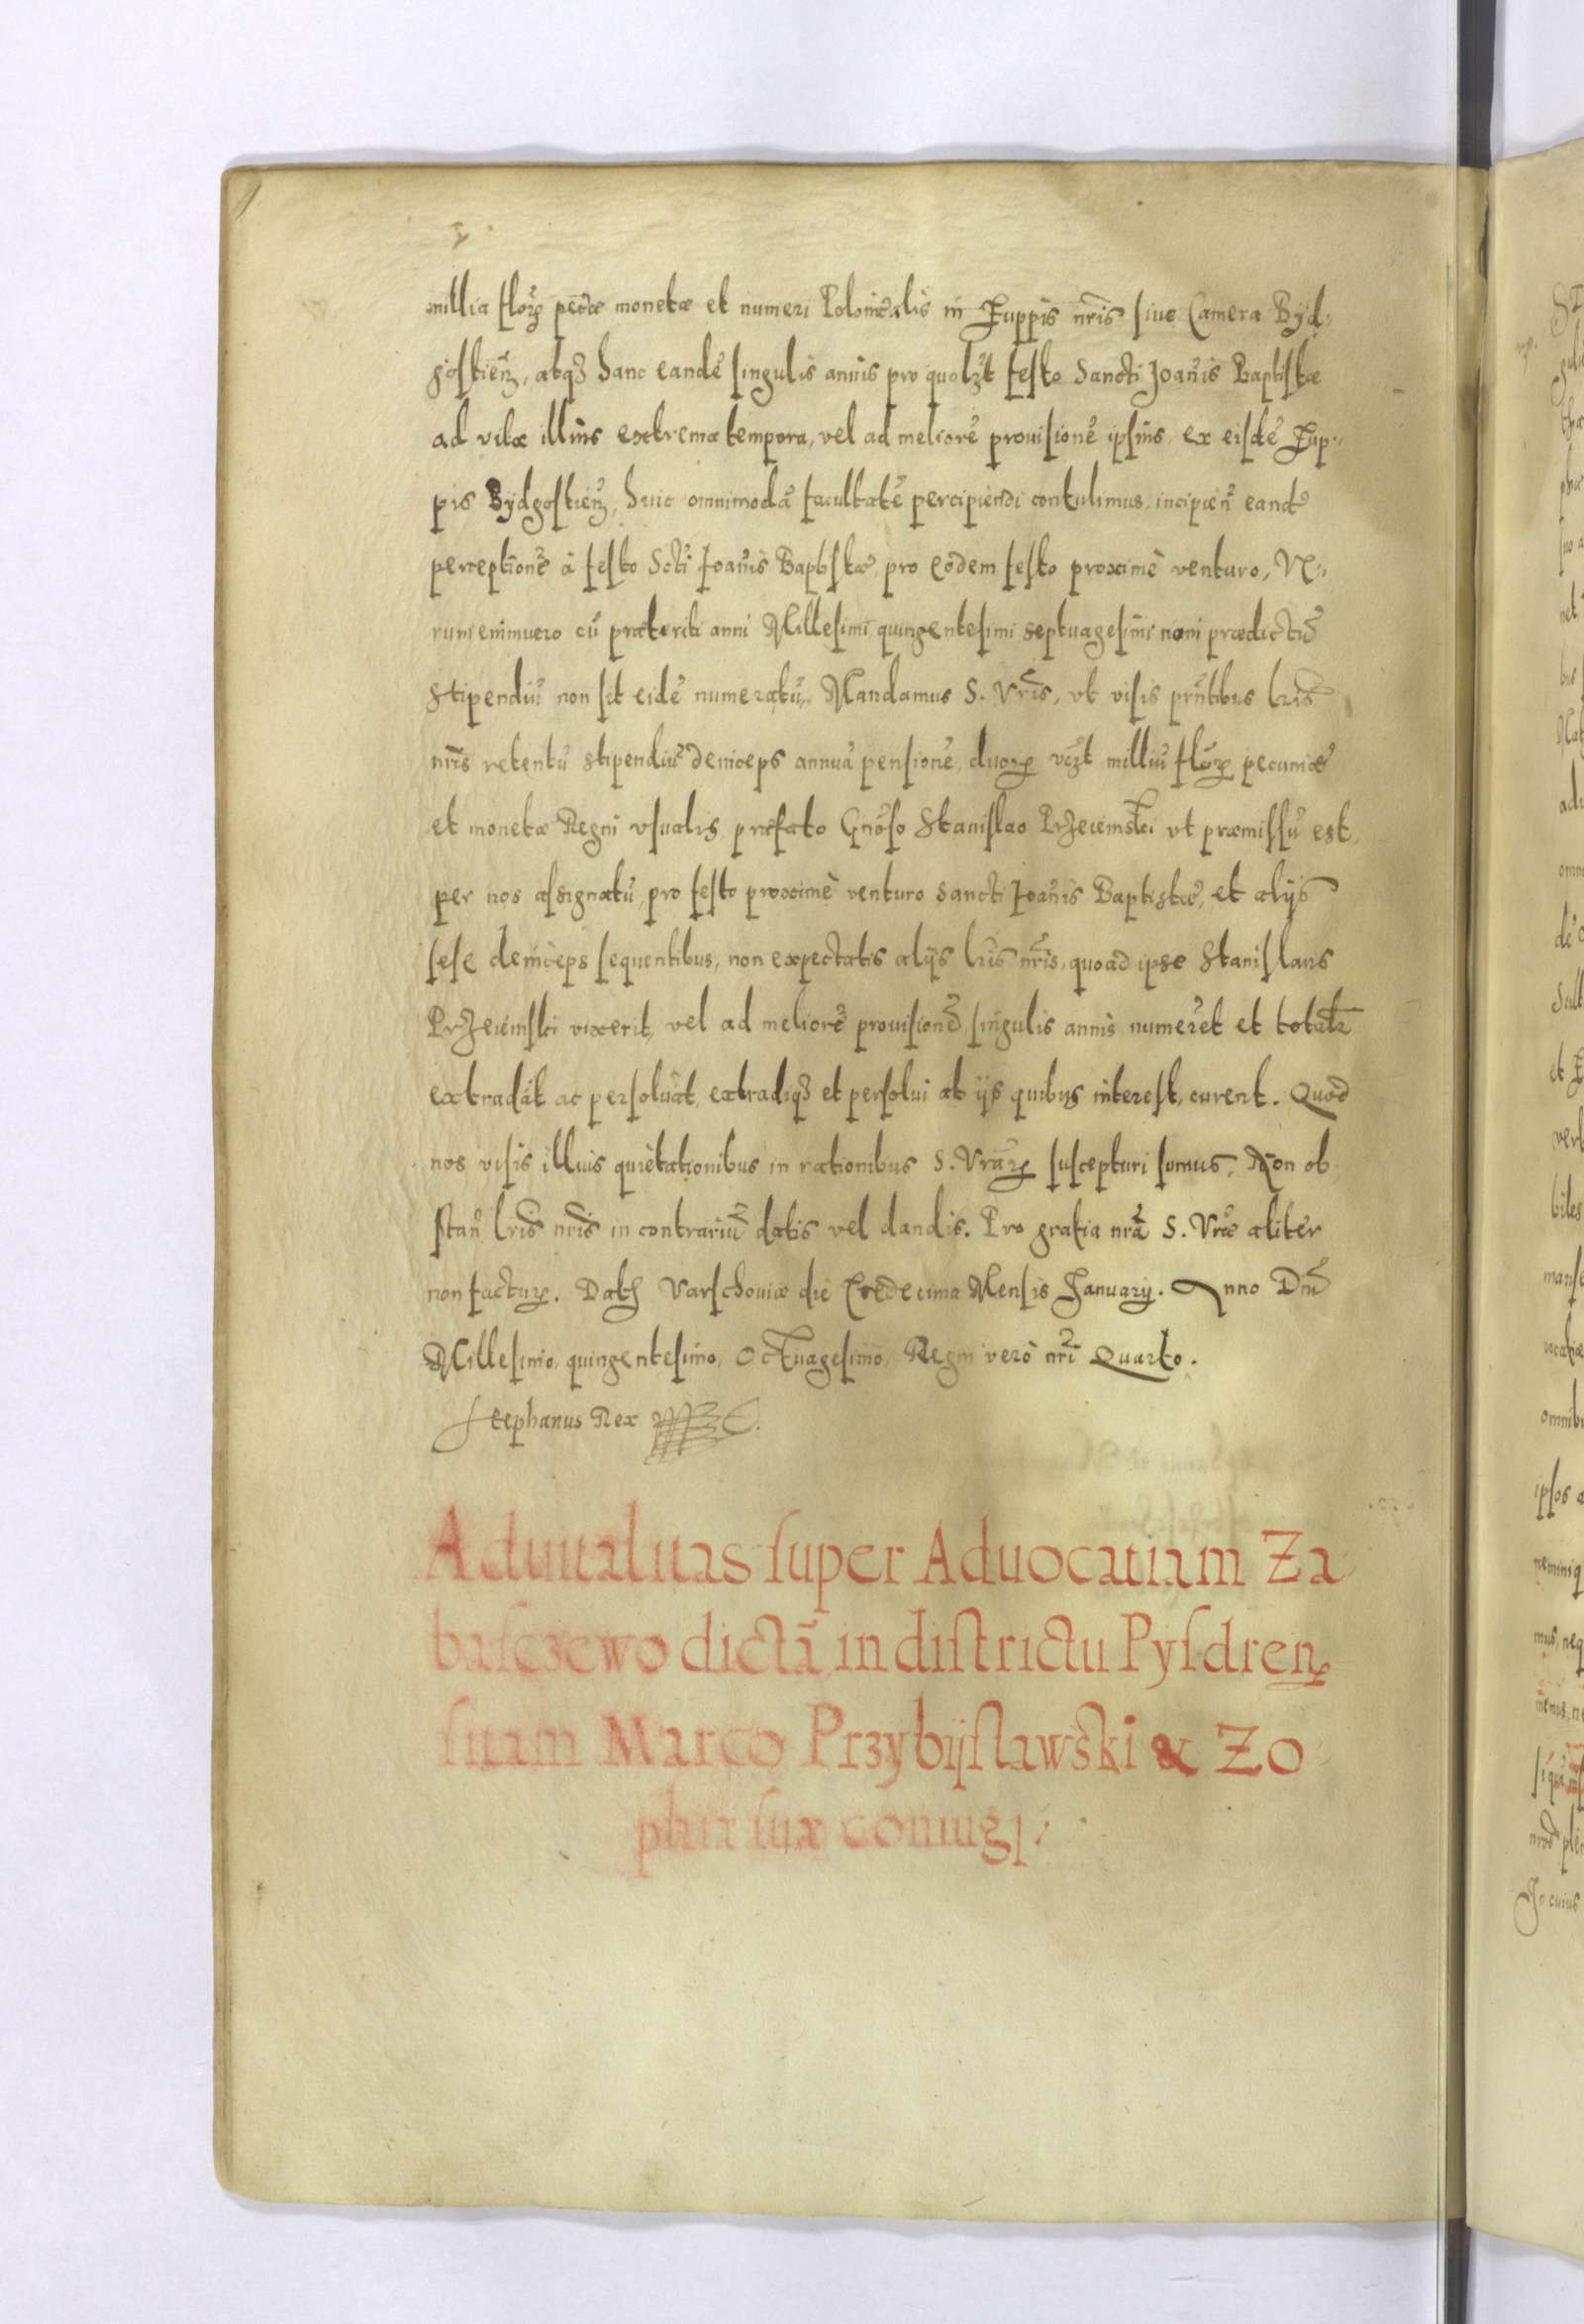 millia florꝝ pecũæ monetæ et numeri Polonicalis in Zuppis nr̃is siue Camera Byd-
gostien̄, atqȝ hanc eandẽ singulis annis pro quolȝt festo Sancti Joan̄is Baptistæ
ad vitæ illius extrema tempora, vel ad meliorẽ prouisionẽ ipsius, ex eisdẽ Zup-
pis Bydgostien̄, huic omnimodã facultatẽ percipiendi contulimus, incipien̄ eand̃
perceptionẽ à festo Scti Joan̄is Baptistæ, pro eodem festo proximè venturo, Ve-
rum enimuero cũ præteriti anni Millesimi quingentesimi septuagesimi noni prædictũ
stipendiũ non sit eidẽ numeratũ, Mandamus S. Vr̃is, vt visis pñtibus lr̃is
nr̃is retentũ stipendiũ deinceps annuã pensionẽ, duorꝝ vȝt milliũ florꝝ pecuniæ
et monetæ Regni vsualis, præfato Gnõso Stanislao Przeiemski vt præmissũ est,
per nos assignatũ, pro festo proximè venturo Sancti Joan̄is Baptistæ, et alijs
sese deinceps sequentibus, non expectatis alijs lr̃is nr̃is, quoad ipse Stanislaus
Przeiemski vixerit, vel ad meliorẽ prouisionẽ, singulis annis numeret et totalr̃
extradãt ac persoluãt, extradiqȝ et persolui ab ijs quibus interest, curent. Quod
nos visis illius quietationibus in rationibus S. Vr̃arꝝ suscepturi sumus, Non ob-
stan̄ lr̃is nr̃is in contrariũ datis vel dandis. Pro gratia nr̃a S. Vr̃æ aliter
non facturꝝ. Datȝ Varschouiæ die Tredecima Mensis Januarij. Anno Dñi
Millesimo, quingentesimo, Octuagesimo, Regni verò nr̃i Quarto.
Stephanus Rex
Aduitalitas super Aduocatiam Za
basczewo dictã in districtu Pysdreñ
sitam Marco Przybijslawski & Zo
phiæ suæ coniugj